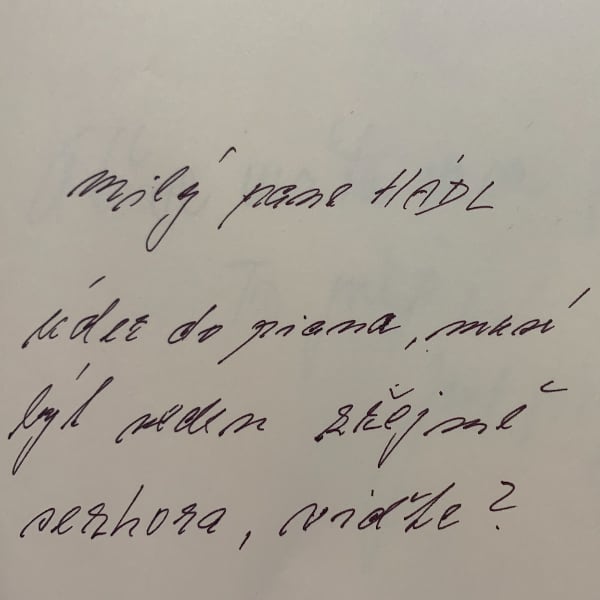 milý pane HÁDL
úder do piana, musí
být veden zřejmě
sezhora, viďte?